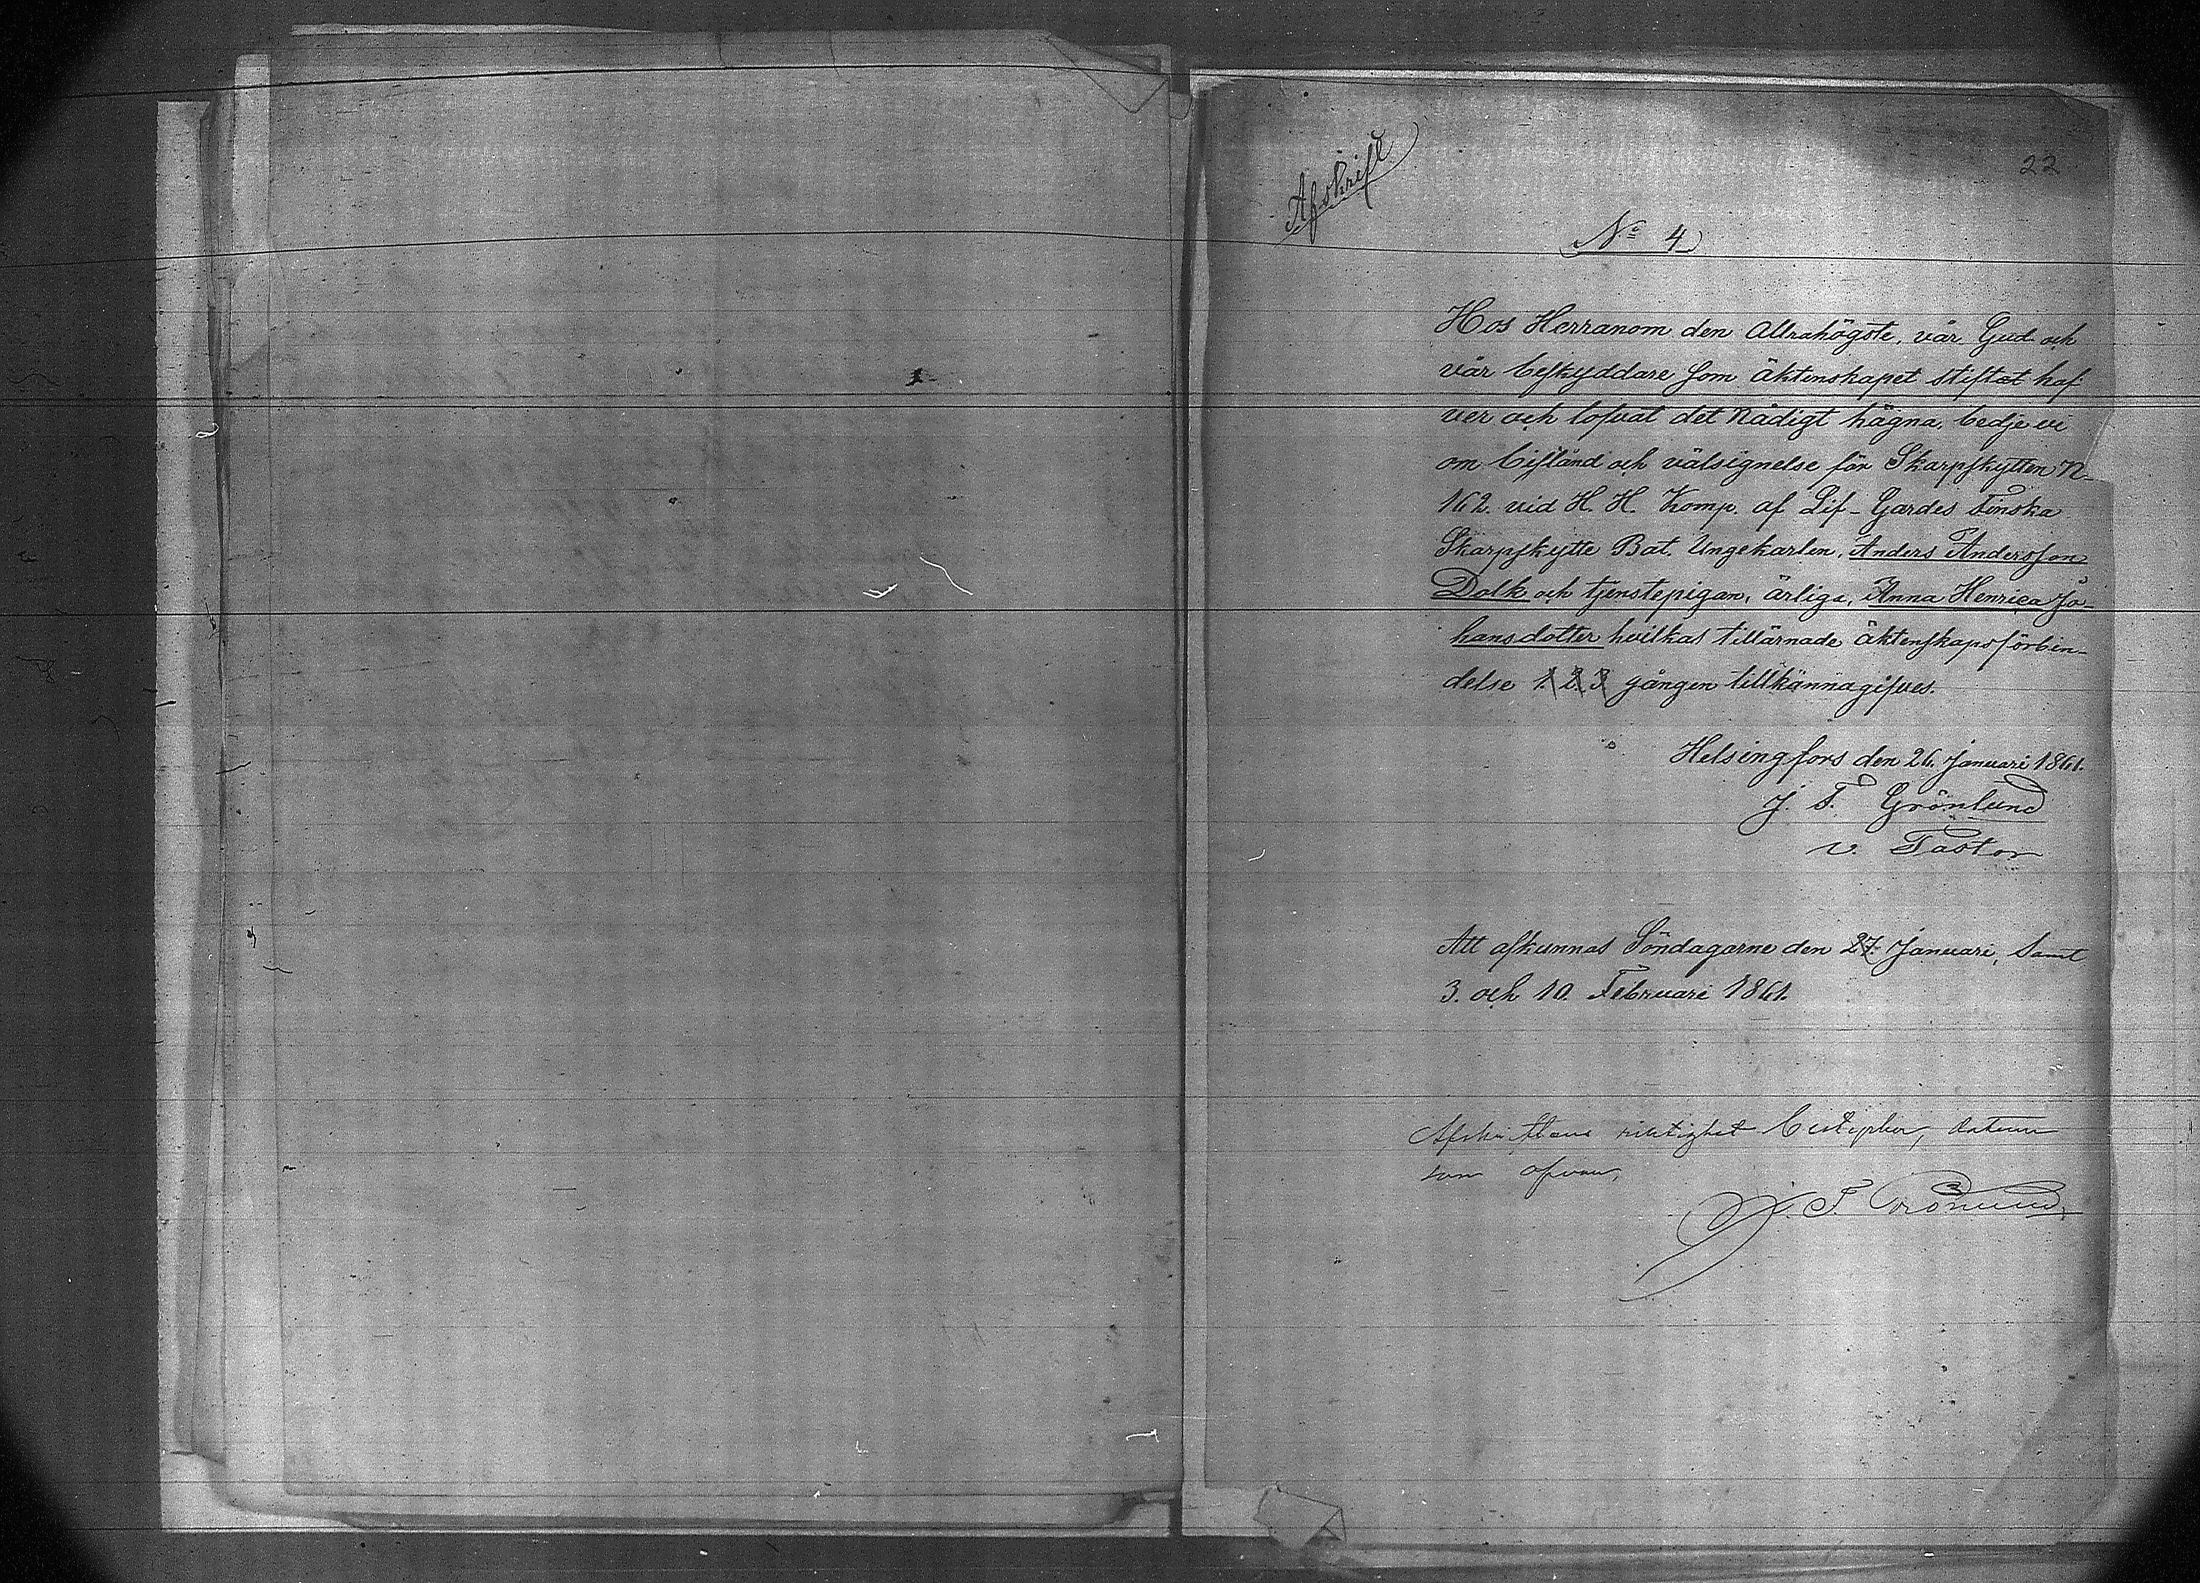 22
Afskrift
No 4
Hos Herranom den Allrahögste, vår Gud och
vår beskyddare som äktenskapet stiftat haf-
ver och lofvat det nådigt hägna, bedje vi
om bistånd och välsignelse för Skarpskytten N-
162. vid H. H. Komp. af Lif-Gardes Finska
Skarpskytte Bat. Ungekarlen, Anders Andersson
Dolk och tjenstepigan, ärliga, Anna Henrica Jo-
hansdotter hvilkas tillärnade äktenskapsförbin-
delse 1. 2. 3 gången tillkännagifves.
Helsingfors den 26. Januari 1861.
J. F. Grönlund
v. Pastor
Att afkunnas Söndagarne den 27. Januari, samt
3. och 10. Februari 1861.
Afskriftens riktighet bestyrker, datum
som ofvan,
J. F. Grönlund